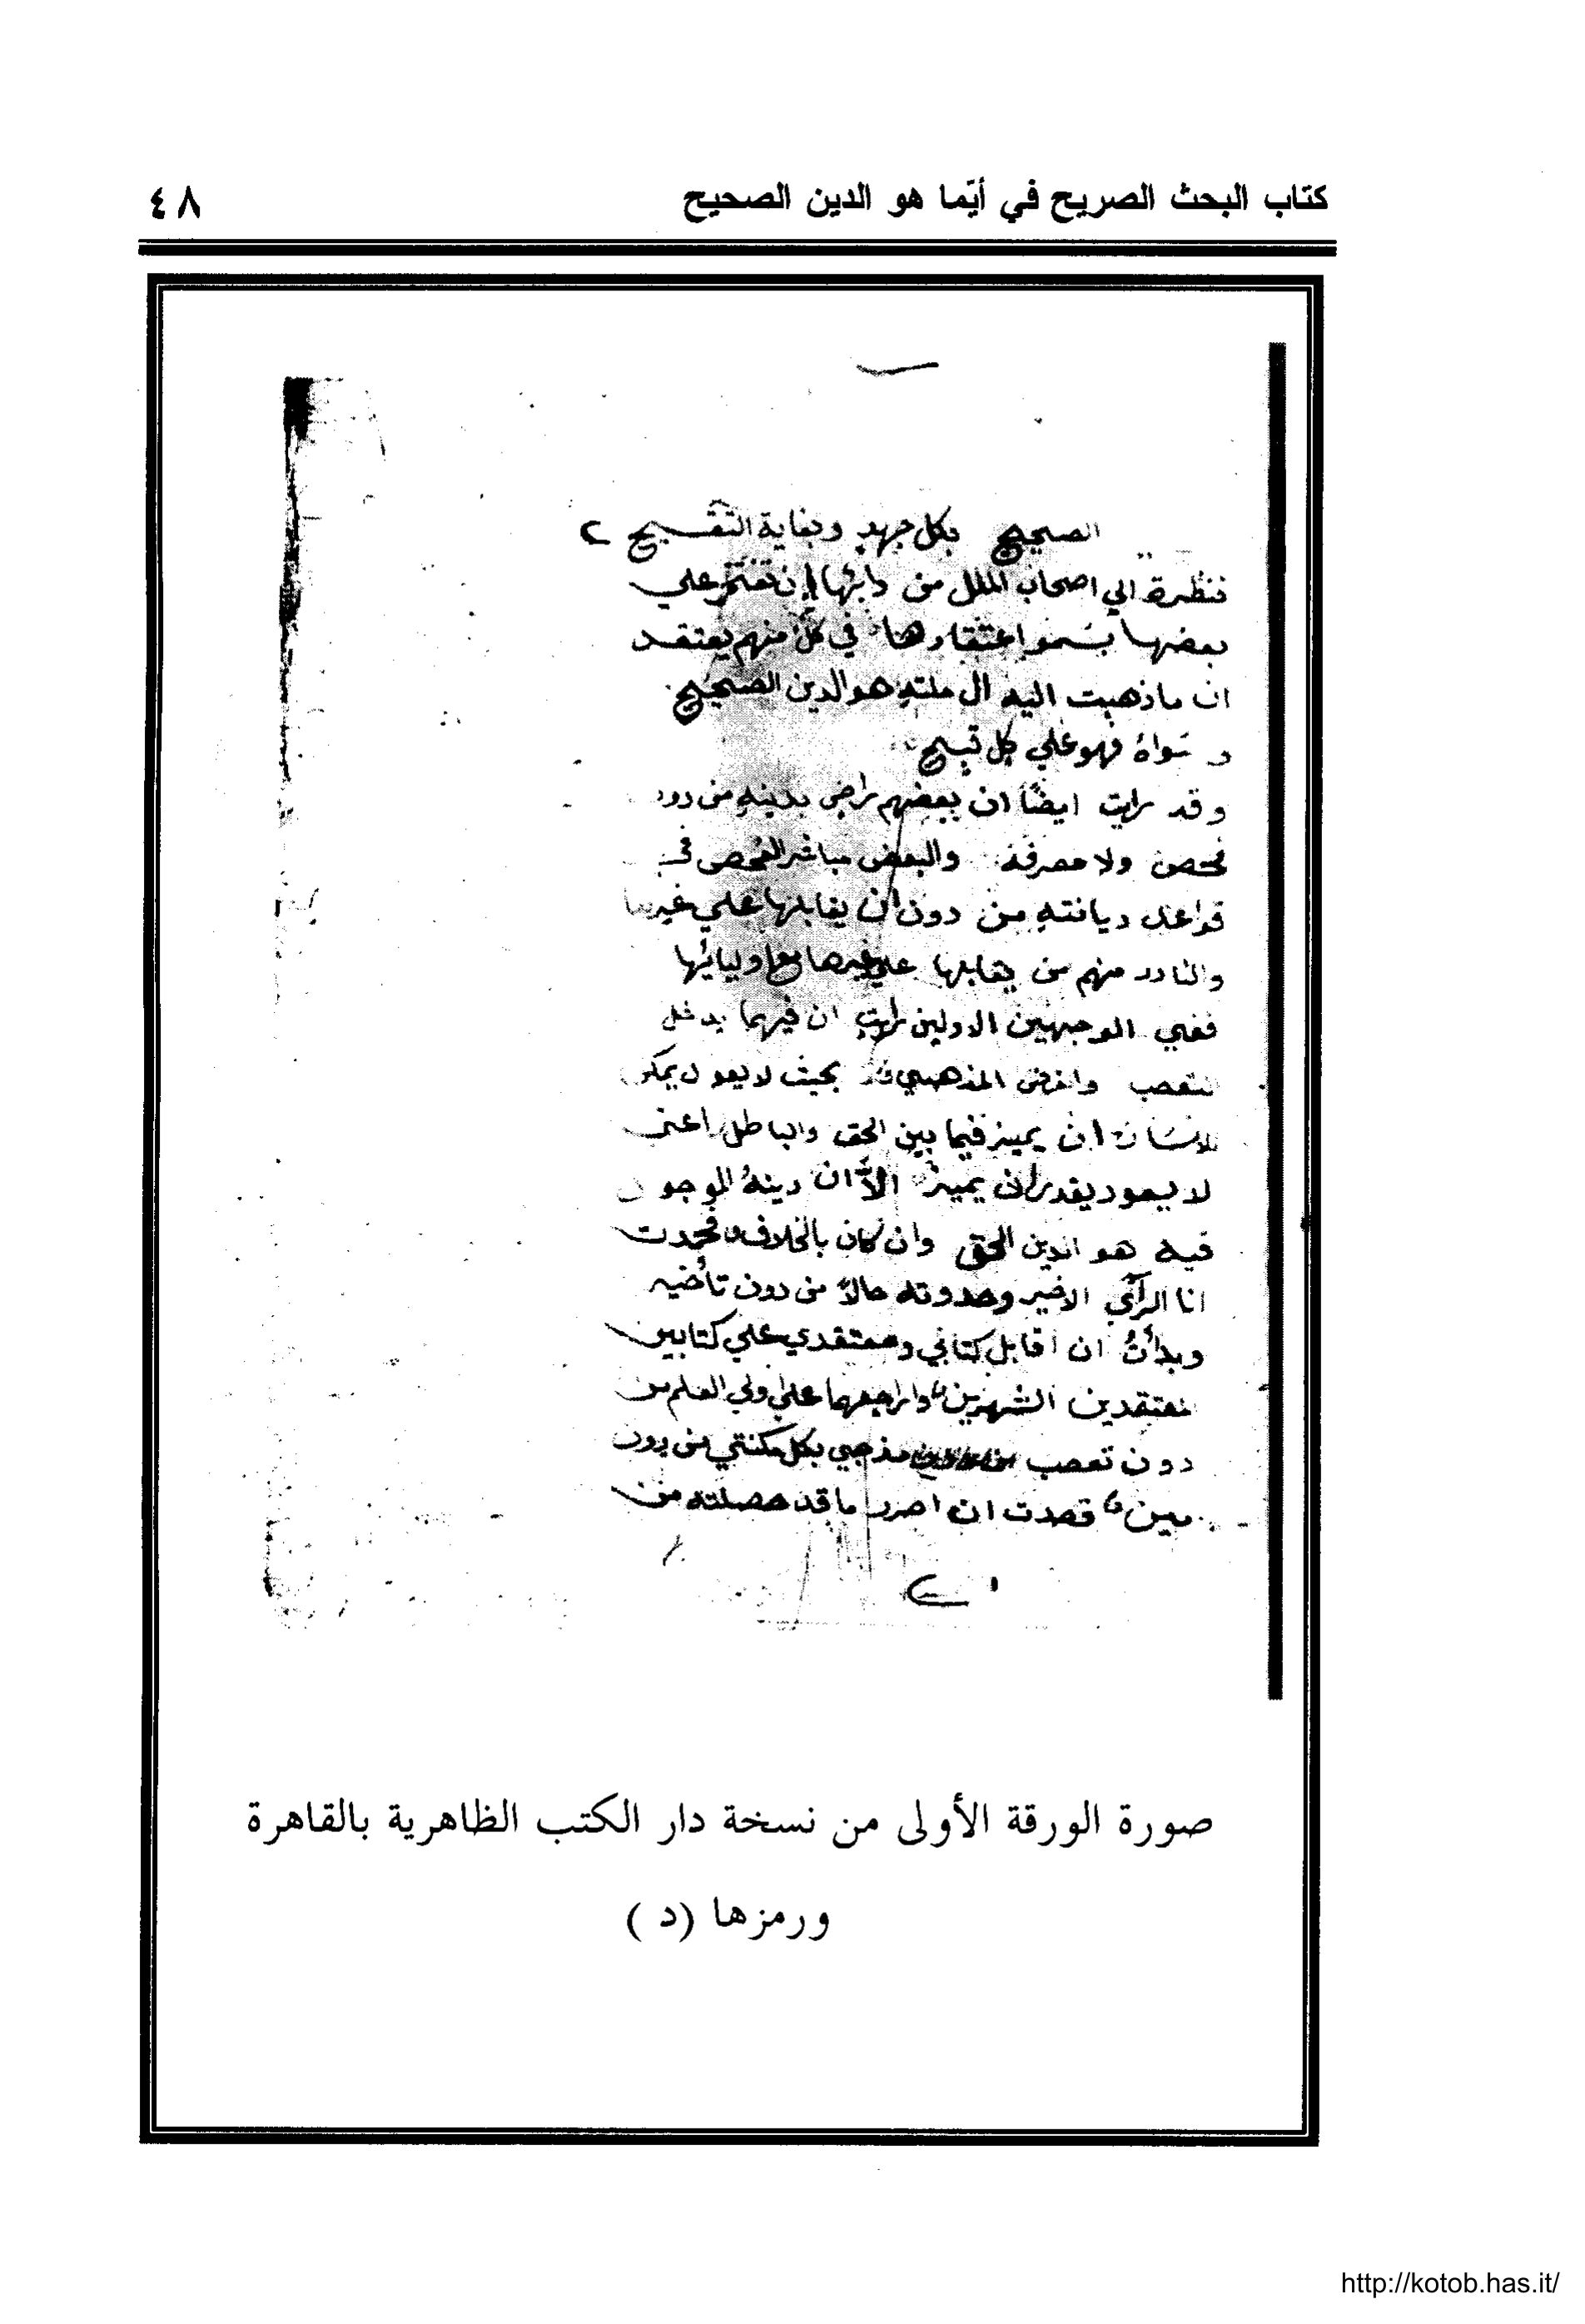 كتاب البحث الصريح في أيّما هو الدين الصحيح
٤٨
الصحيح بكل جهد وبغاية التنقيح
فنظرت الي اصحاب الملل من دابها ان تفتخر علي
بعضها بسمو اعتقادها في كل منهم يعتقد
ان ماذهبت اليه ال ملته هو الدين الصحيح
و سواهُ فهو علي كل قبيح
وقد رايت ايضًا ان بعضهم راضي بدينه من دون
فحص ولا معرفة والبعض مباشر الفحص في
قواعد ديانته من دون ان يقابلها علي غيرها
والنادر منهم من يقابلها علي غيرها مع اوليائها
ففي الوجهين الاولين رايت ان فيهما يدخل
التعصب والغرض المذهبي بحيث لا يعود يمكن
للانسان ان يميز فيما بين الحق والباطل اعني
لا يعود يقدر ان يميز الّا ان دينهُ الموجود
فيه هو الدين الحق وان كان بالخلاف فوجدت
انا الرأي الاخير وحدوته حالاً من دون تأخير
وبدأتُ ان اقابل كتابي ومعتقدي علي كتابين
معتقدين الشهيرين واراجعهما علي اولي العلم من
دون تعصب مذهبي بكل مكنتي من دون
مين قصدت ان احرر ما قد حصلته من
صورة الورقة الأولى من نسخة دار الكتب الظاهرية بالقاهرة
ورمزها (د )
http://kotob.has.it/